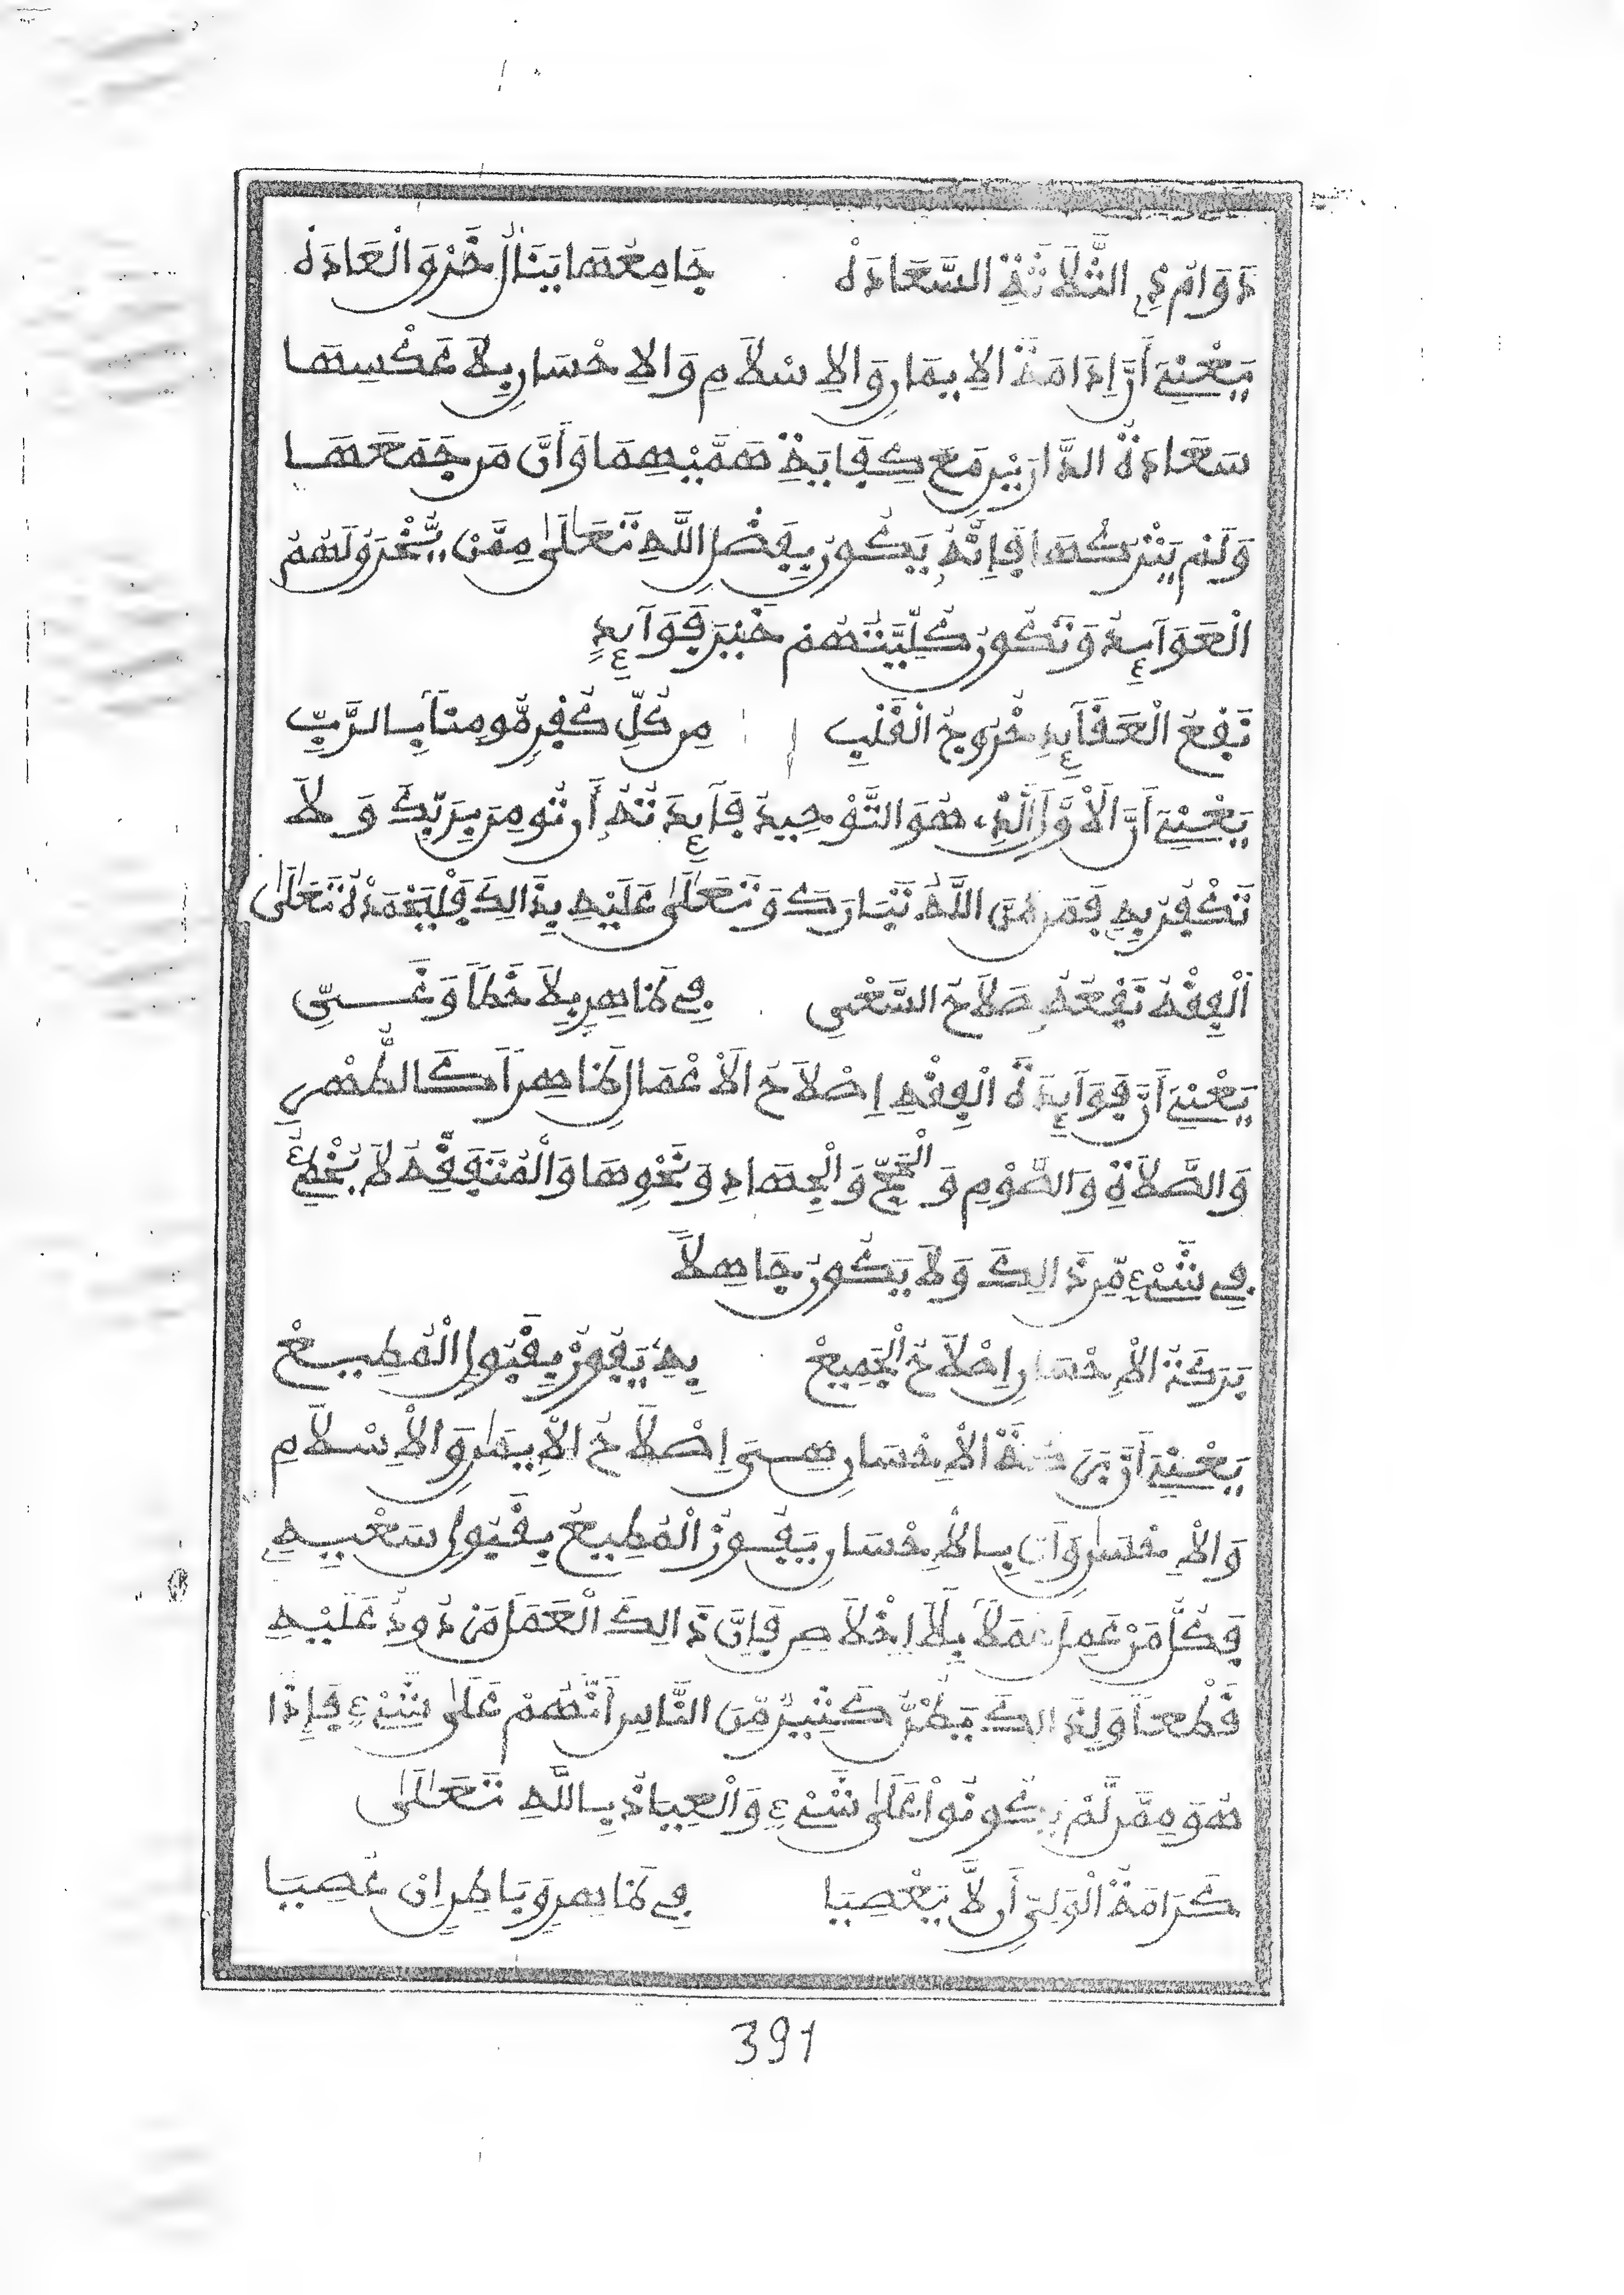 دَوَامُ ذِي الثَّلَاثَةِ السَّعَادَهْ جَامِعُهَا يَنَالُ خَرْقَ الْعَادَهْ
يَعْنِي أَنَّ إِدَامَةَ الْإِيمَانِ وَالْإِسْلَامِ وَالْإِحْسَانِ بِلَا عَكْسِهَا
سَعَادَةُ الدَّارَيْنِ مَعَ كِفَايَةِ هَمَّيْهِمَا وَأَنَّ مَن جَمَعَهَا
وَلَمْ يَتْرُكْهَا فَإِنَّهُ يَكُونُ بِفَضْلِ اللَّهِ تَعَالَىٰ مِمَّنْ تُخْرَقُ لَهُمُ
الْعَوَآئِدُ وَتَكُونُ كُلِّيَّتُهُمْ خَيْرَ فَوَآئِدٍ
نَفْعُ الْعَقَآئِدِ خُرُوجُ الْقَلْبِ مِن كُلِّ كُفْرٍ مُّومِنًا بِالرَّبِّ
يَعْنِي أَنَّ الْأَوَّلَ الَّذِي هُوَ التَّوْحِيدُ فَآئِدَتُهُ أَن تُومِنَ بِرَبِّكَ وَلَا
تَكْفُرَ بِهِ فَمَن مَنَّ اللَّهُ تَبَارَكَ وَتَعَالَىٰ عَلَيْهِ بِذَالِكَ فَلْيَحْمَدْهُ تَعَالَىٰ
اَلْفِقْهُ نَفْعُهُ صَلَاحُ السَّعْيِ فِي ظَاهِرٍ بِلَا خَطَاً وَغَيِّ
يَعْنِي أَنَّ فَوَآئِدَةَ الْفِقْهِ إِصْلَاحُ الْأَعْمَالِ ظَاهِرًا كَالطُّهْرِ
وَالصَّلَاةِ وَالصَّوْمِ وَالْحَجِّ وَالْجِهَادِ وَنَحْوِهَا وَالْمُتَفَقِّهُ لَا يُخْطِئُ
فِي شَيْءٍ مِّن ذَالِكَ وَلَا يَكُونُ جَاهِلًا
بَرَكَةُ الْإِحْسَانِ إِصْلَاحُ الْجَمِيعْ بِهِ يَفُوزُ بِقَبُولِ الْمُطِيعْ
يَعْنِي أَنَّ بَرَكَةَ الْإِحْسَانِ هِيَ إِصْلَاحُ الْإِيمَانِ وَالْإِسْلَامِ
وَالْإِحْسَانِ وَأَنَّ بِالْإِحْسَانِ يَفُوزُ الْمُطِيعُ بِقَبُولِ سَعْيِهِ
فَكُلُّ مَنْ عَمِلَ عَمَلًا بِلَا إِخْلَاصٍ فَإِنَّ ذَالِكَ الْعَمَلَ مَرْدُودٌ عَلَيْهِ
قَطْعًا وَلِذَالِكَ يَظُنُّ كَثِيرٌ مِّنَ النَّاسِ أَنَّهُمْ عَلَىٰ شَيْءٍ فَإِذَا
هُوَ مِمَّن لَّمْ يَكُونُوا عَلَىٰ شَيْءٍ وَالْعِيَاذُ بِاللَّهِ تَعَالَىٰ
كَرَامَةُ الْوَلِيِّ أَن لَّا يَعْصِيَا فِي ظَاهِرٍ وَبَاطِنٍ إِنْ عُصِيَا
391